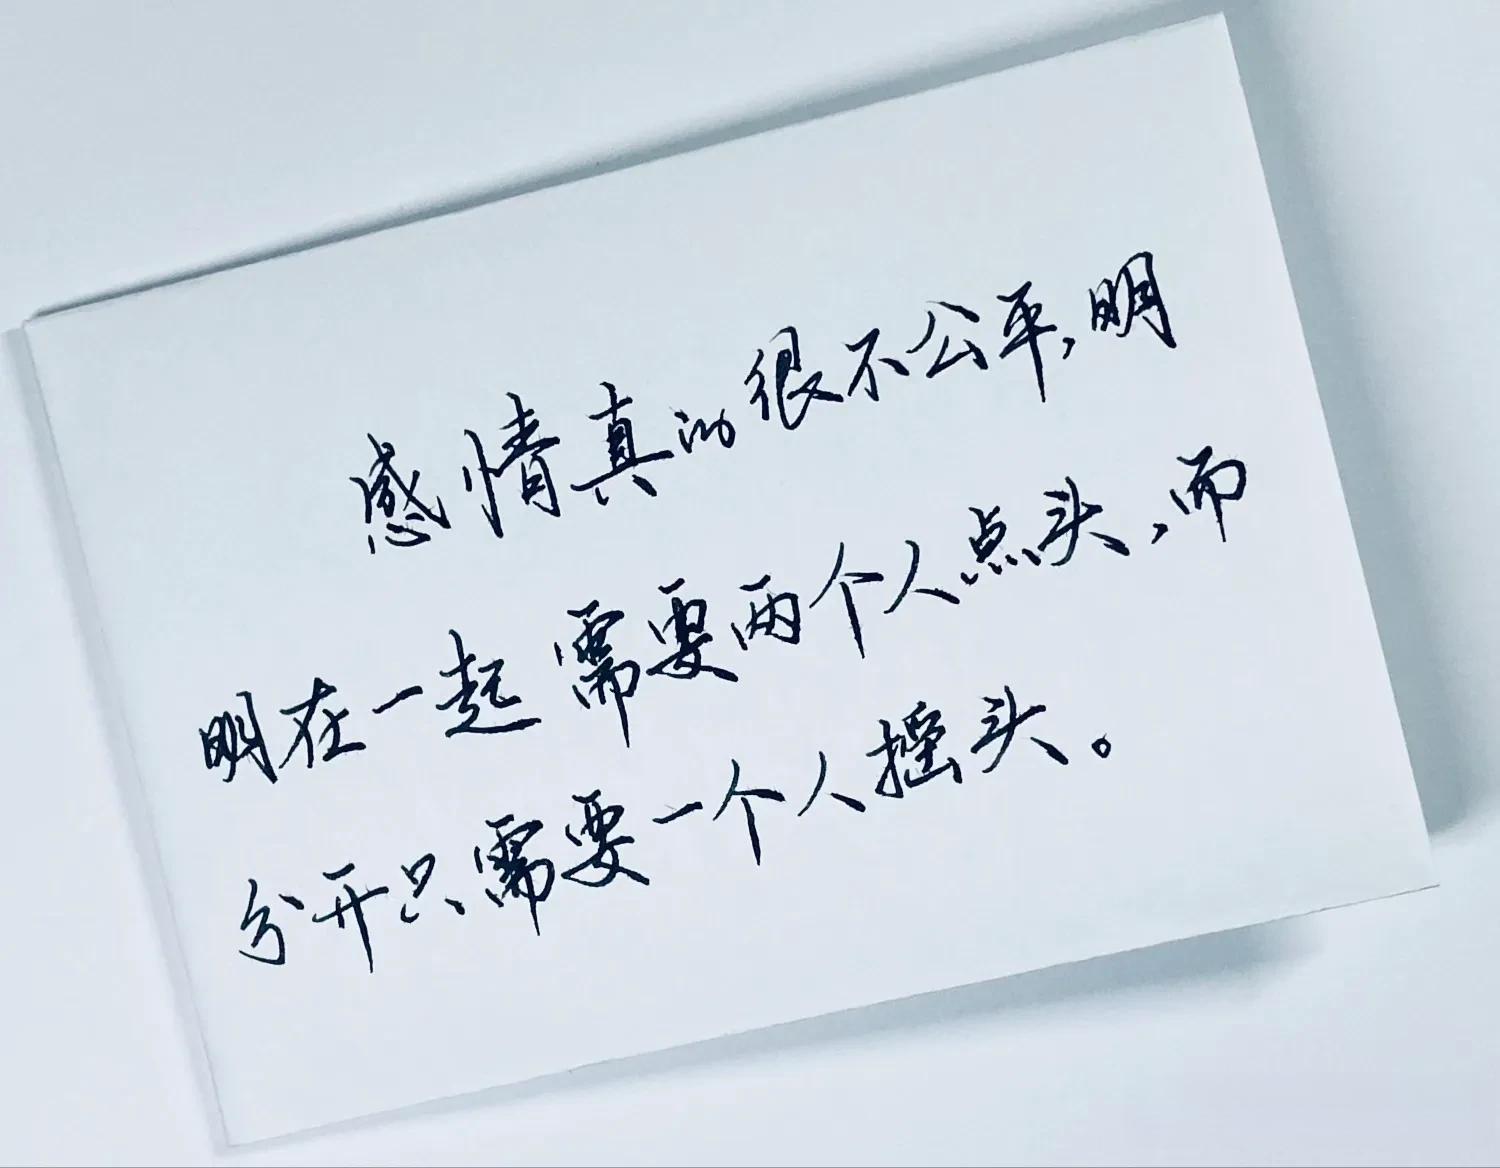 感情真的很不公平,明
明在一起需要两个人点头,而
分开只需要一个人摇头。